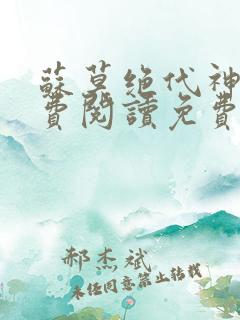 蘇莫绝代神
費閱讀免費
郝杰斌
未经同意禁止转载